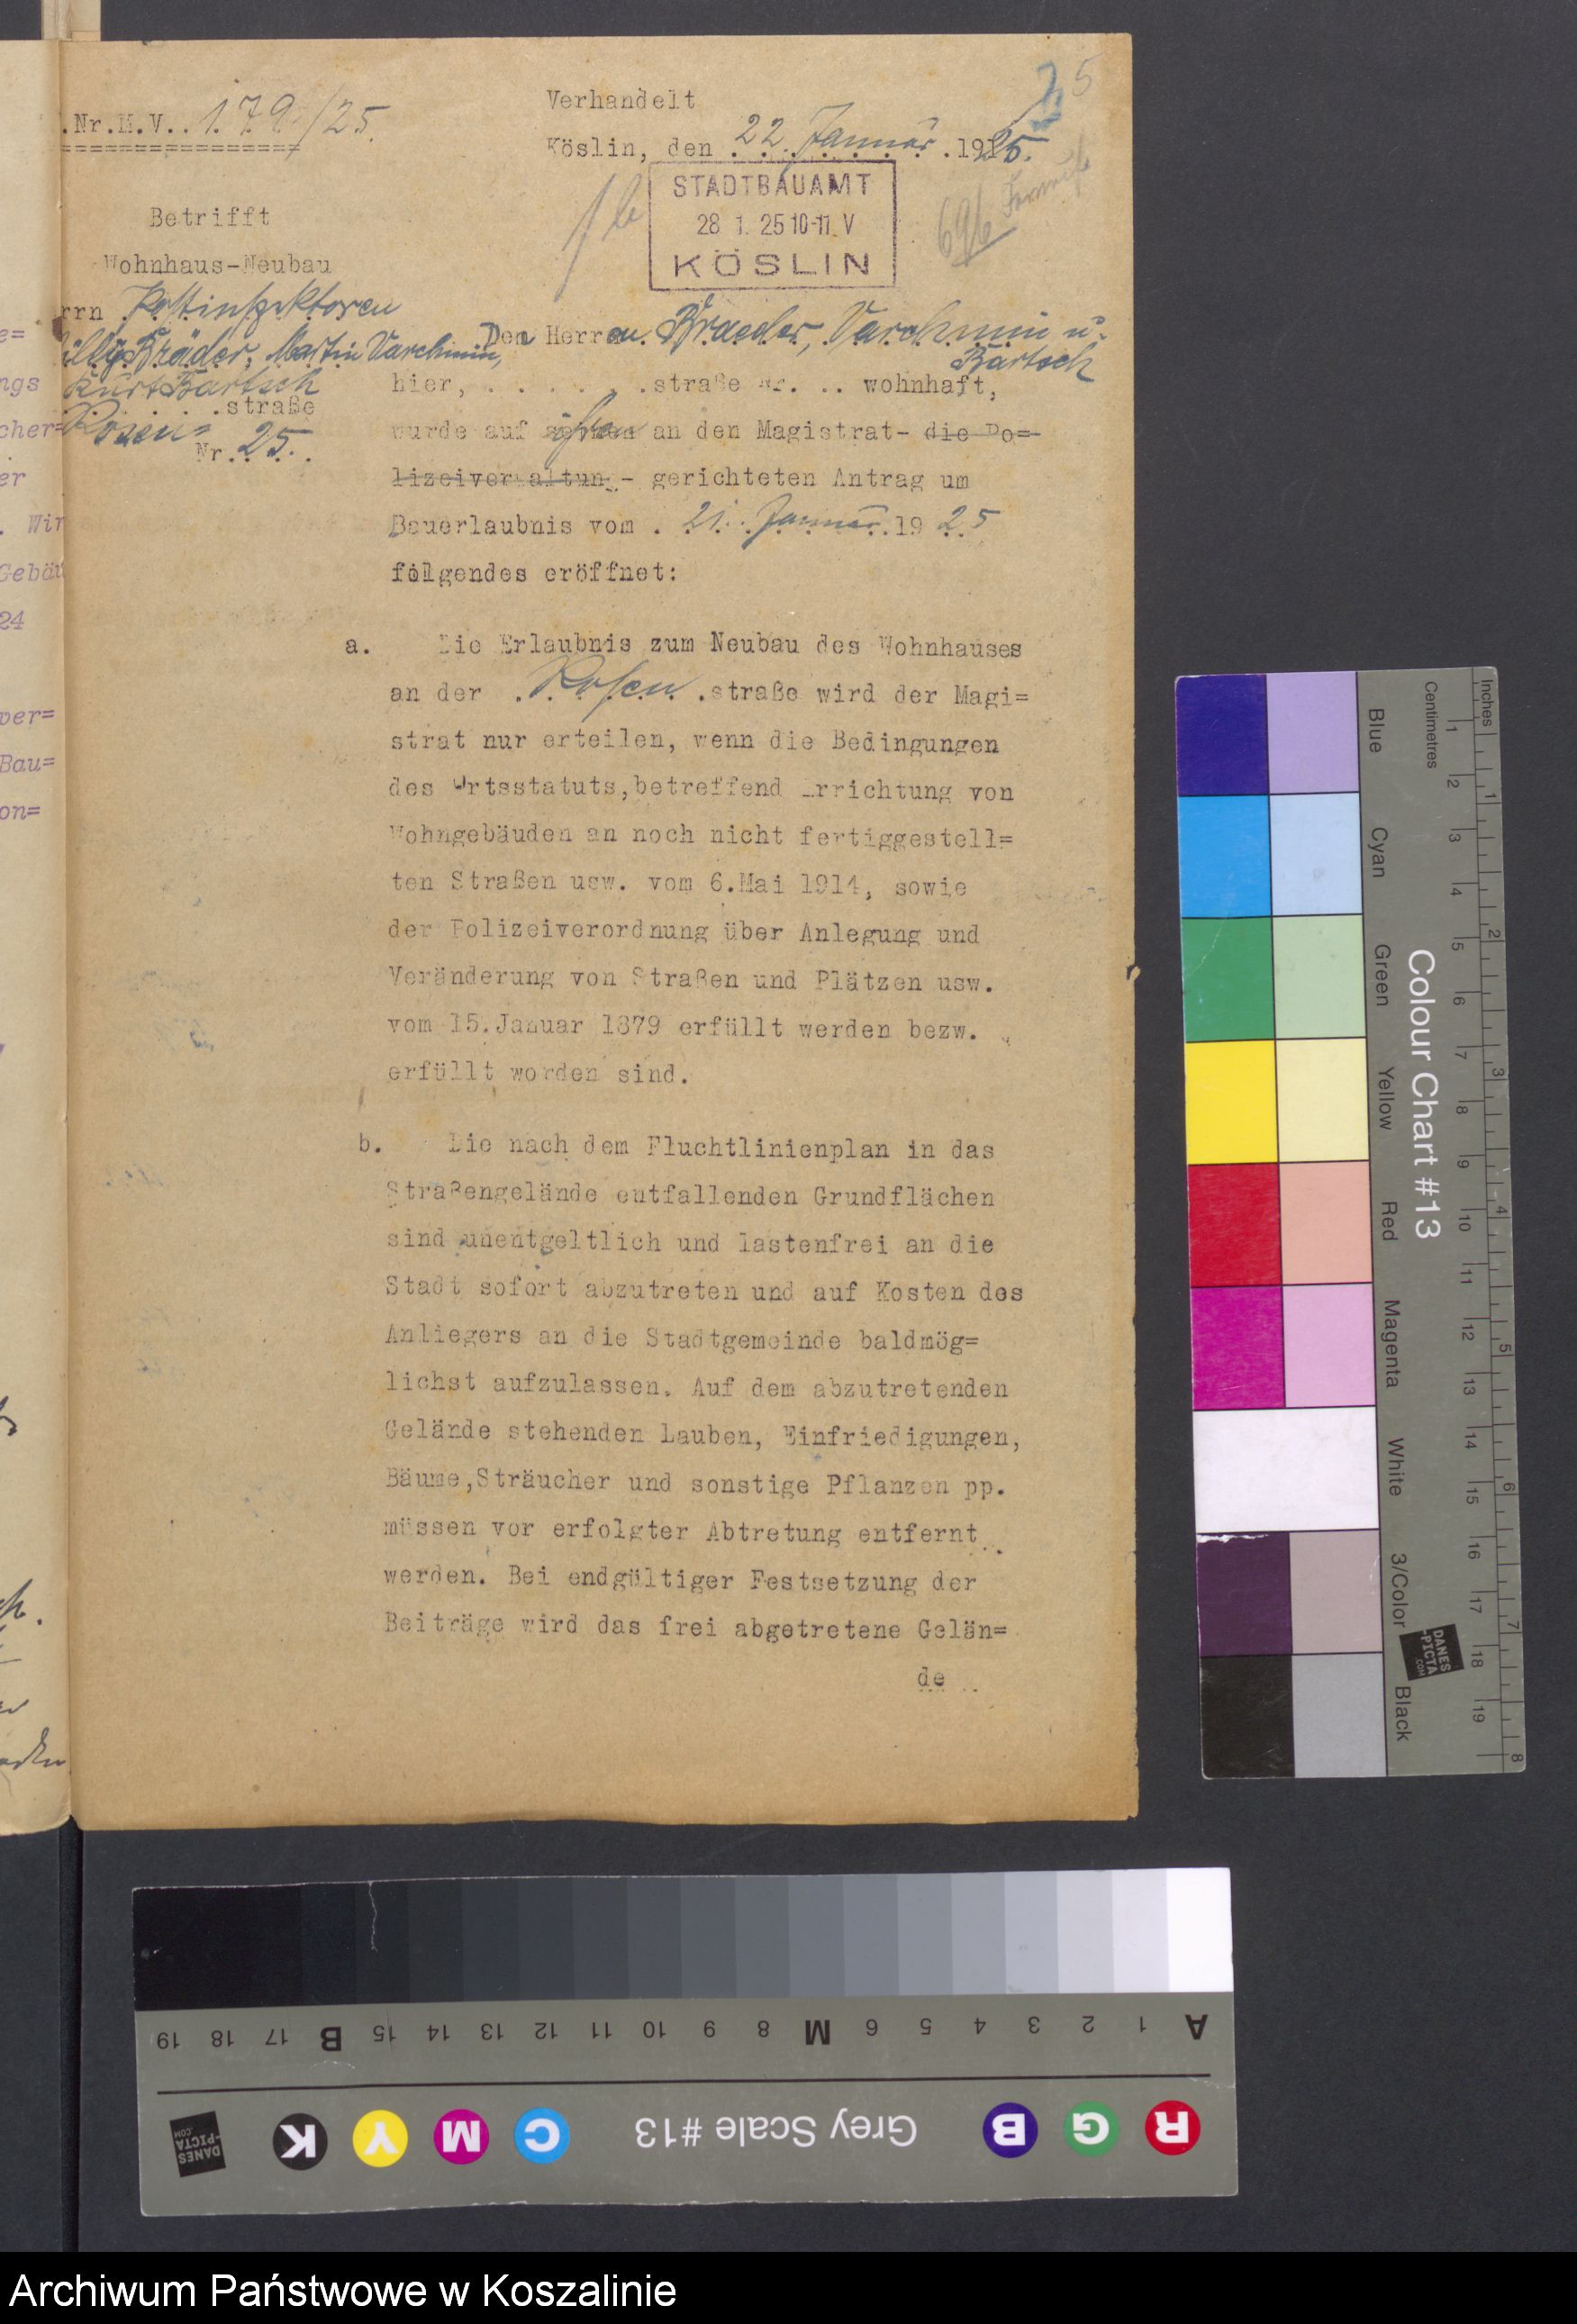 .Nr.M.V..179/25.
Verhandelt
Köslin, den 22. Januar 1925.
5
STADTBAUAMT
28 1. 25 10-11 V
KÖSLIN
1b
696
Betrifft
Wohnhaus-Neubau
rrn Postinspektoren
illy Bräder, Martin Varchmin,
Kurt Bartsch
Rosen straße
Nr. 25.
Den Herren Braeder, Varchmin u.
Bartsch
hier, . . . . . .straße Nr. .. wohnhaft,
wurde auf ihren an den Magistrat- die Po=
lizeiverwaltung - gerichteten Antrag um
Bauerlaubnis vom . 21. Januar 19 25
folgendes eröffnet:
a. Die Erlaubnis zum Neubau des Wohnhauses
an der . Rosen .straße wird der Magi=
strat nur erteilen, wenn die Bedingungen
des Ortsstatuts,betreffend Errichtung von
Wohngebäuden an noch nicht fertiggestell=
ten Straßen usw. vom 6.Mai 1914, sowie
der Polizeiverordnung über Anlegung und
Veränderung von Straßen und Plätzen usw.
vom 15.Januar 1879 erfüllt werden bezw.
erfüllt worden sind.
b. Die nach dem Fluchtlinienplan in das
Straßengelände entfallenden Grundflächen
sind unentgeltlich und lastenfrei an die
Stadt sofort abzutreten und auf Kosten des
Anliegers an die Stadtgemeinde baldmög=
lichst aufzulassen. Auf dem abzutretenden
Gelände stehenden Lauben, Einfriedigungen,
Bäume,Sträucher und sonstige Pflanzen pp.
müssen vor erfolgter Abtretung entfernt
werden. Bei endgültiger Festsetzung der
Beiträge wird das frei abgetretene Gelän=
de
e=
ngs
cher=
er
. Wir
Gebäu
24
ver=
Bau=
on=
Colour Chart #13
Blue
Cyan
Green
Yellow
Red
Magenta
White
3/Color
Black
Inches
Centimetres
1 2 3 4 5 6 7 8 9 10 11 12 13 14 15 16 17 18 19
1 2 3 4 5 6 7 8
DANES
-PICTA
.COM
A 1 2 3 4 5 6 M 8 9 10 11 12 13 14 15 B 17 18 19
R G B Grey Scale #13 C M Y K
DANES
-PICTA
.COM
Archiwum Państwowe w Koszalinie